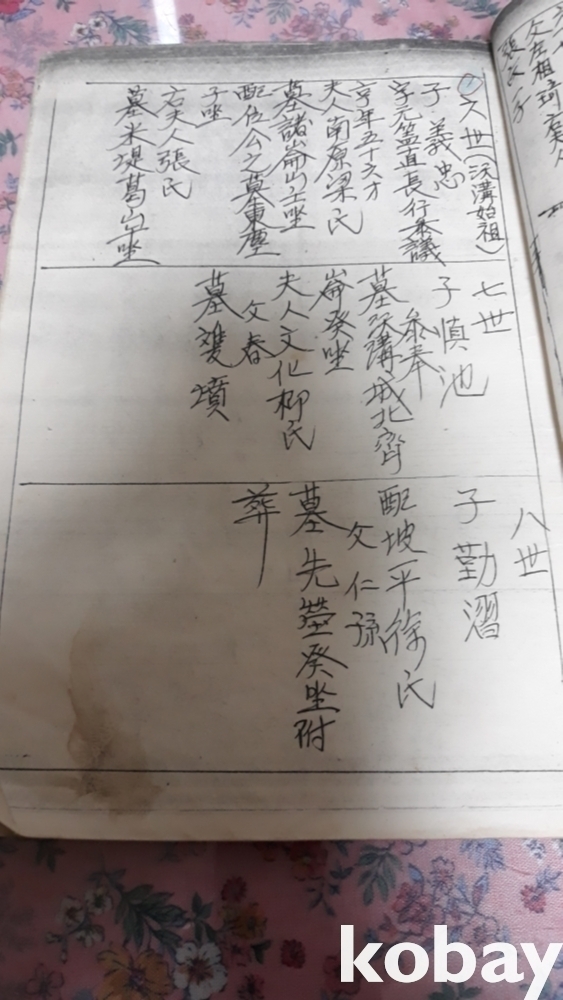 六世(沃溝始祖)
子義忠
字元益直長行叅議
享年五十六才
夫人南原梁氏
墓諸崙山壬坐
配位公之墓東麓
子坐
右夫人張氏
墓米堤葛山坐
七世
子慎池
叅奉
墓沃溝城北齊
崙癸坐
夫人文化柳氏
父春
墓雙墳
八世
子勤濯
配坡平徐氏
父仁孫
墓先塋癸坐附
葬
kobay